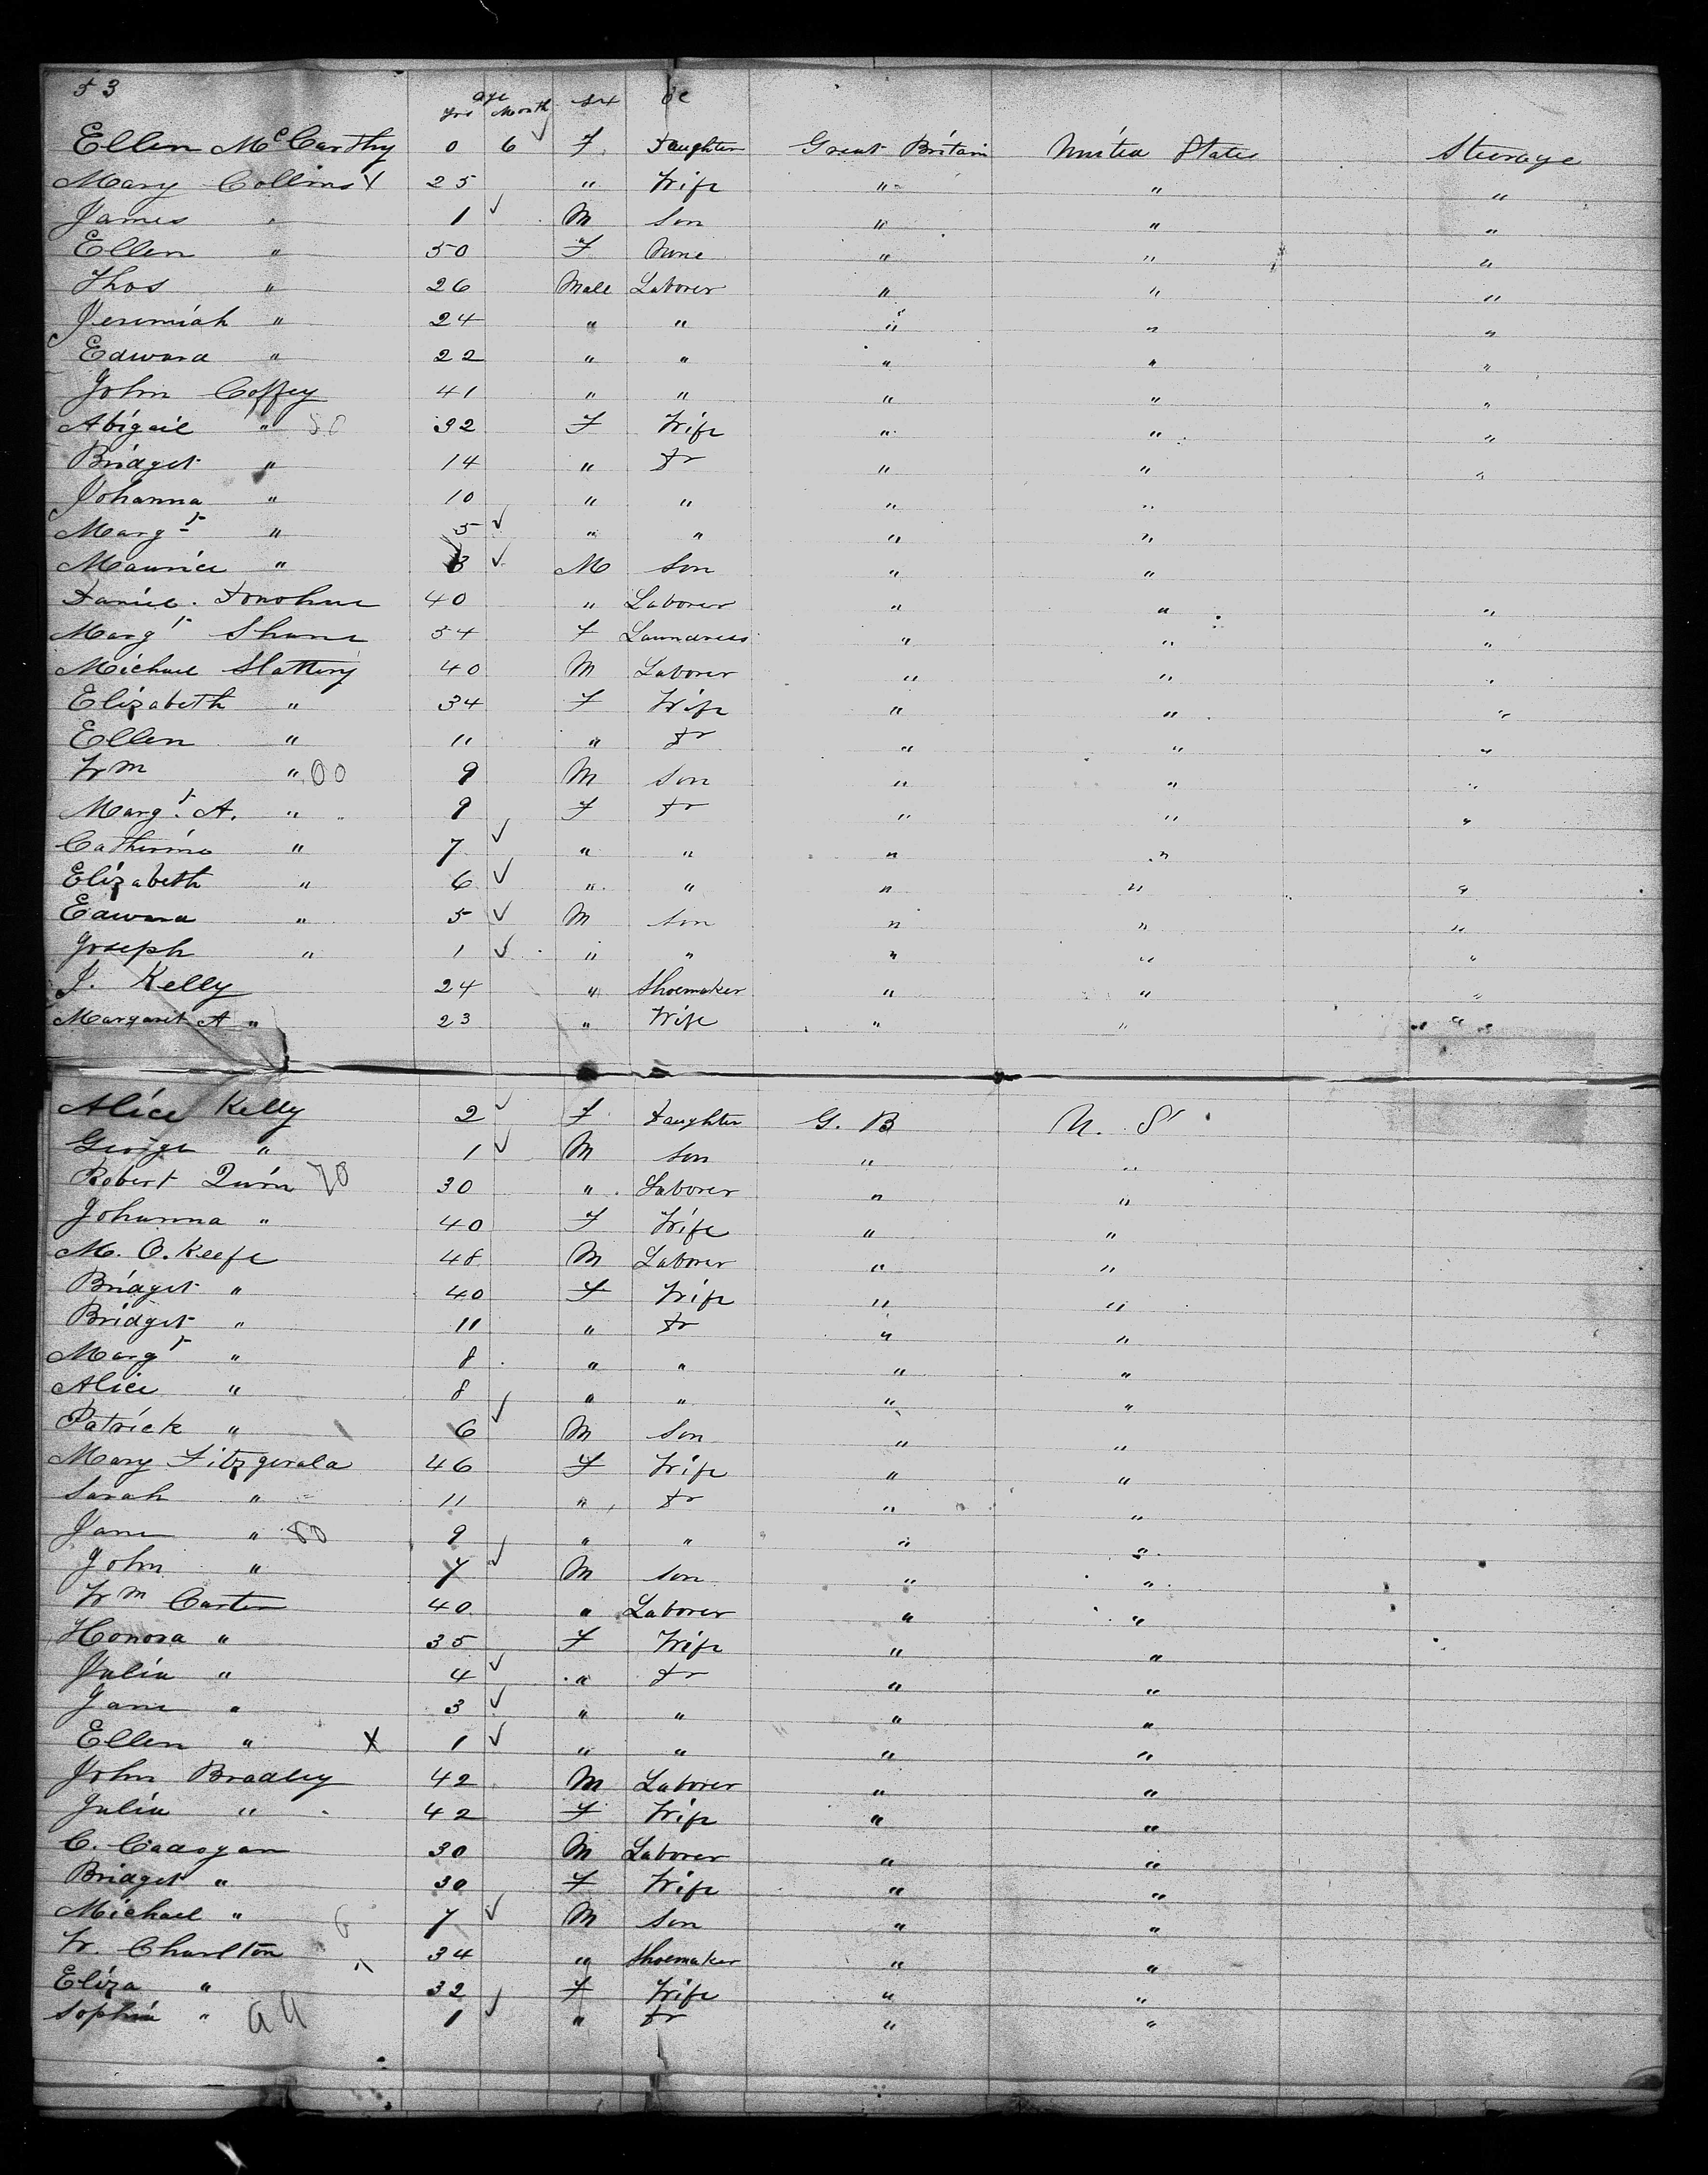 53
age
yrs Month sex oc
Ellen McCarthy 0 6 F Daughter Great Britain United States Steerage
Mary Collins X 25 " Wife " " "
James " 1 ✓ M Son " " "
Ellen " 50 F " " "
Thos " 26 Male Laborer " " "
Jeremiah " 24 " " " " "
Edward " 22 " " " " "
John Coffey 41 " " " " "
Abigail " 50 32 F Wife " " "
Bridget " 14 " Dr " " "
Johanna " 10 " " " "
Margt " 5 ✓ " " " "
Maurice " 3 ✓ M Son " "
Daniel Donohue 40 " Laborer " " "
Margt Shane 54 F Laundress " " "
Michael Slattery 40 M Laborer " " "
Elizabeth " 34 F Wife " " "
Ellen " 11 " Dr " " "
Wm " 00 9 M Son " " "
Margt. A. " 9 F Dr " " "
Catherine " 7 ✓ " " " "
Elizabeth " 6 ✓ " " " " "
Edward " 5 ✓ M Son " " "
Joseph " 1 ✓ " " " " "
J. Kelly 24 " Shoemaker " " "
Margaret A " 23 " Wife " " "
Alice Kelly 2 ✓ F Daughter G. B U. S
George " 1 ✓ M Son " "
Robert Quin 70 30 " Laborer " "
Johanna " 40 F Wife " "
M. O.Keefe 48 M Laborer " "
Bridget " 40 F Wife " "
Bridget " 11 " Dr " "
Margt " 8 " " " "
Alice " 8 " " " "
Patrick " 6 ✓ M Son " "
Mary Fitzgerald 46 F Wife " "
Sarah " 11 " Dr " "
Jane " 80 9 " " " "
John " 7 ✓ M Son " "
Wm Carter 40 " Laborer " "
Honora " 35 F Wife " "
Julia " 4 ✓ " Dr " "
Jane " 3 ✓ " " " "
Ellen " X 1 ✓ " " " "
John Bradley 42 M Laborer " "
Julia " 42 F Wife " "
C. Cadogan 30 M Laborer " "
Bridget " 30 F Wife " "
Michael " 7 ✓ M Son " "
W. Charlton 34 " Shoemaker " "
Eliza " 32 F Wife " "
Sophia " 1 ✓ " Dr " "